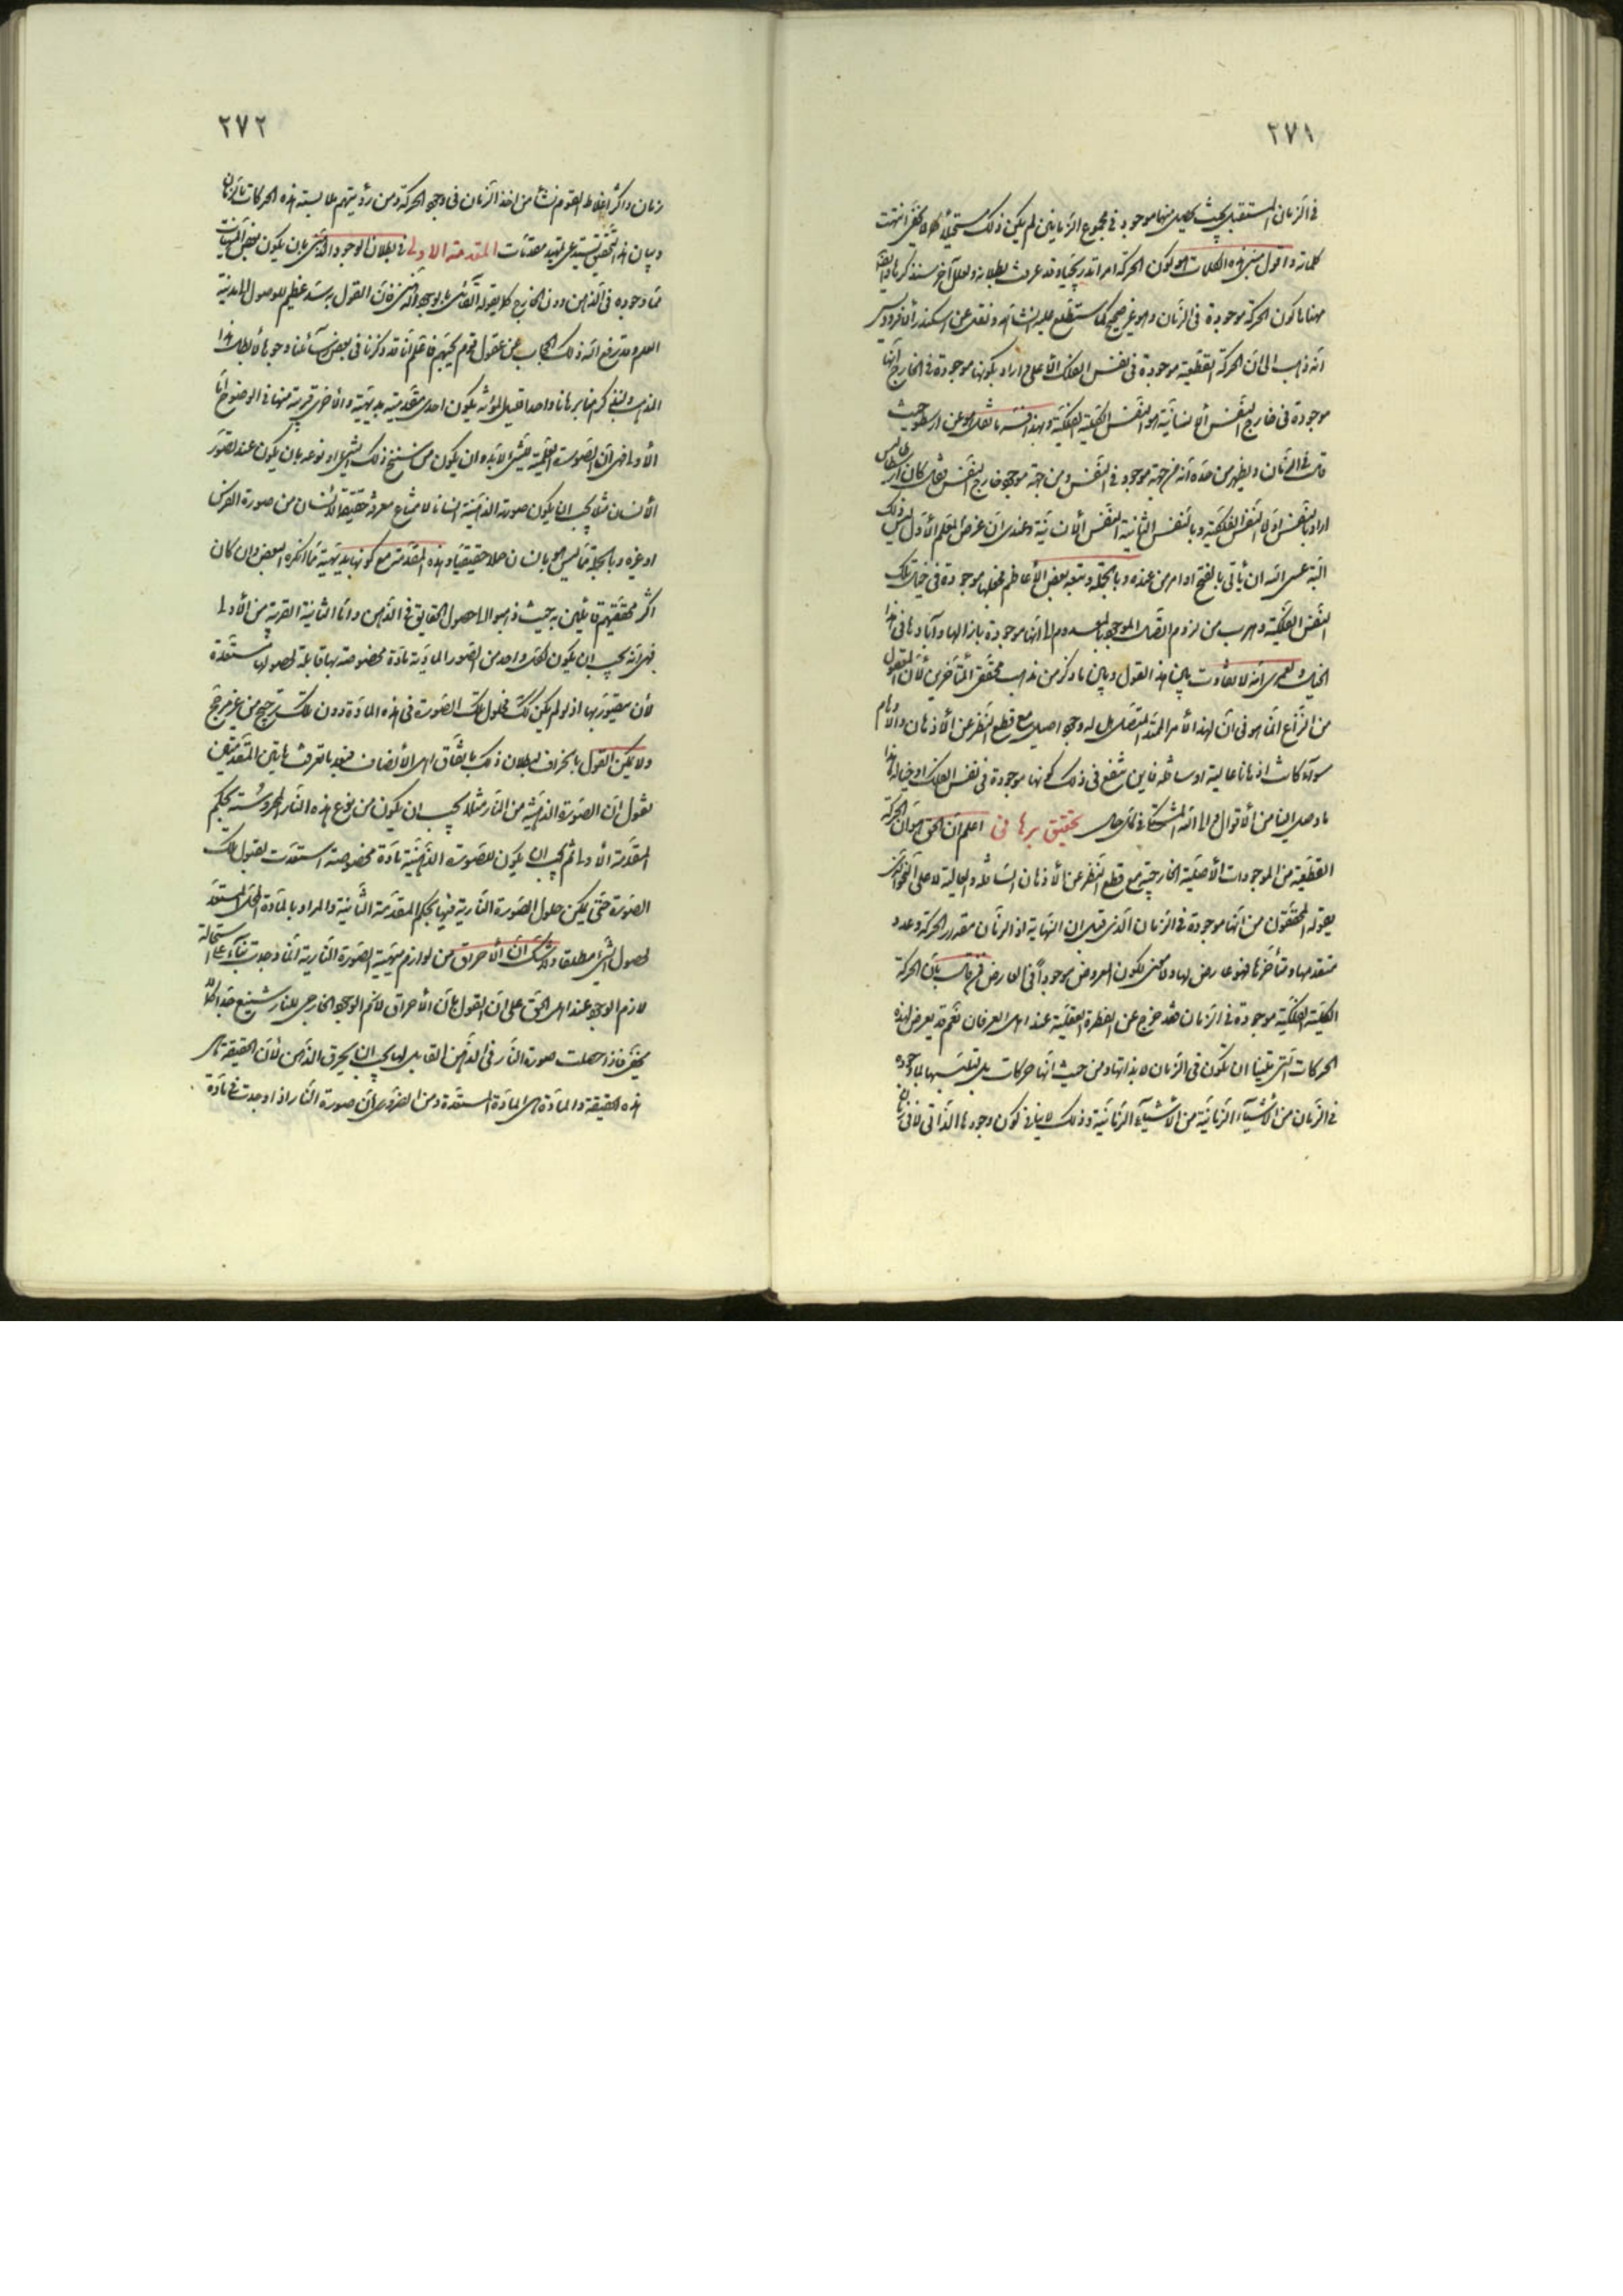 ٢٧١
في الزمان المستقبل بحيث يحصل منها موجود في مجموع الزمانين لم يكن ذلك مستحيلاً كما لا يخفى انتهت
كلماته واقول مبنى هذه الكلمات هو كون الحركة امرا تدريجيا وقد عرفت بطلانه ولعلل آخر سنذكرها وايضا
مبناها كون الحركة موجودة في الزمان وهو غير صحيح كما ستطلع عليه انشاء الله ونقل عن اسكندر الأفرودوسي
أنه ذهب الى ان الحركة القطعية موجودة في نفس الفلك الأعلى و اراد بكونها موجودة في الخارج انها
موجودة في خارج النفس الإنسانية هو النفس الكلية الفلكية ولهذا نقله عن ارسطو حيث
قال في الزمان ويظهر من حده أنه من جهة موجود في النفس ومن جهة موجود خارج النفس فقال كان ارسطاطاليس
اراد بالنفس اولا النفس الفلكية وبالنفس الثانية النفس الإنسانية وعندي ان غرض المعلم الأول ليس ذلك
البتة عسى الله ان يأتي بالفتح او امر من عنده وبالجملة وتبعه بعض الأعاظم فجعلها موجودة في خيال تلك
النفس الفلكية وهرب من لزوم اتصال الموجود بالمعدوم الى انها موجودة بازالها وآبادها في هذا
الخيال ولعمري انه لا تفاوت بين هذا القول وبين ما ذكر من مذهب محقق المتأخرين لأن المعقول
من النزاع انما هو في ان لهذا الأمر الممتد المتصل هل له وجود اصيل مع قطع النظر عن الأذهان والأوهام
سواء كانت اذهانا عالية او سافلة فاين تنفع في ذلك كونها موجودة في نفس الفلك او خياله هذا
ما وصل الينا من الأقوال والى الله المشتكى في كل حال تحقيق برهاني اعلم ان الحق هو ان الحركة
القطعية من الموجودات الأصلية الخارجية مع قطع النظر عن الأذهان السافلة والعالية لا على النحو الذي
يقوله المحققون من انها موجودة في الزمان الذي قبل ان النهاية اذ الزمان مقدار الحركة وعدد
متقدمها ومتأخرها فهو عارض لها ولا معنى لكون المعروض موجوداً في العارض فمن قال بأن الحركة
الكلية الفلكية موجودة في الزمان فقد خرج عن الفطرة العقلية عند اهل العرفان نعم قد يعرض لهذه
الحركات التي تلينا ان تكون في الزمان لا بذاتها ومن حيث انها حركات بل بتلبسها بما وجوده
في الزمان من الأشياء الزمانية من الأشياء الزمانية وذلك لا ينافي كون وجودها الذاتي لا في زمان
٢٧٢
زمان واكثر اغلاط القوم نشأ من اخذ الزمان في وجود الحركة ومن رؤيتهم ملابسة هذه الحركات بالزمان
وبيان هذا التحقيق يستدعي تمهيد مقدمات المقدمة الاولى في بطلان الوجود الذهني بان يكون بعض المهيات
مما وجوده في الذهن دون الخارج كما يقوله القائلون بوجود الذهني فان القول به سد عظيم للوصول الى مدينة
العلم وقد يرفع الله ذلك الحجاب عن عقول قوم يحبهم فاعلم انا قد ذكرنا في بعض رسائلنا وجوها لإبطال هذا
المذهب ولنذكر هنا برهانا واحدا قليل المؤنة يكون احدى مقدمتيه بديهية والأخرى قريبة منها في الوضوح اما
الأولى فهي ان الصورة العلمية لشيء لابد ان يكون من سنخ ذلك الشيء او نوعه بان يكون عند تصور
الأنسان مثلا يجب ان يكون صورته الذهنية انسانا لامتناع معرفة حقيقة الانسان من صورة الفرس
او غيره وبالجملة مما ليس هو بانسان حملا حقيقيا وهذه المقدمة مع كونها بديهية مما انكره البعض وان كان
اكثر محققيهم قائلين به حيث ذهبوا الى حصول الحقايق في الذهن واما الثانية القريبة من الأولى
فهي انه يجب ان يكون لكل واحد من الصور المادية مادة مخصوصة بها قابلة لحصولها مستعدة
لأن يتصور بها اذ لو لم يكن كك فحلول تلك الصورة في هذه المادة دون تلك ترجيح من غير مرجح
ولا يمكن القول بالجزاف لبطلان ذلك باتفاق اهل الأنصاف فبعد ما تعرفت هاتين المقدمتين
نقول ان الصورة الذهنية من النار مثلا يجب ان يكون من نوع هذه النار المحروسة بحكم
المقدمة الأولى ثم يجب ان يكون للصورة الذهنية مادة مخصوصة استعدت لقبول تلك
الصورة حتى يمكن حلول الصورة النارية فيها بحكم المقدمة الثانية والمراد بالمادة المحل المستعد
لحصول الشيء مطلقا ولا شك ان الأحراق من لوازم مهية الصورة النارية انما وجدت بناء على استحالة
لازم الوجود عند اهل الحق على ان القول بأن الأحراق لازم الوجود الخارجي للنار شنيع جدا كما لا
يخفى فاذا حصلت صورة النار في الذهن القابل لها يجب ان يحرق الذهن لأن الحقيقة هي
هذه الحقيقة والمادة هي المادة المستعدة ومن الضروري ان صورة النار اذا وجدت في مادة